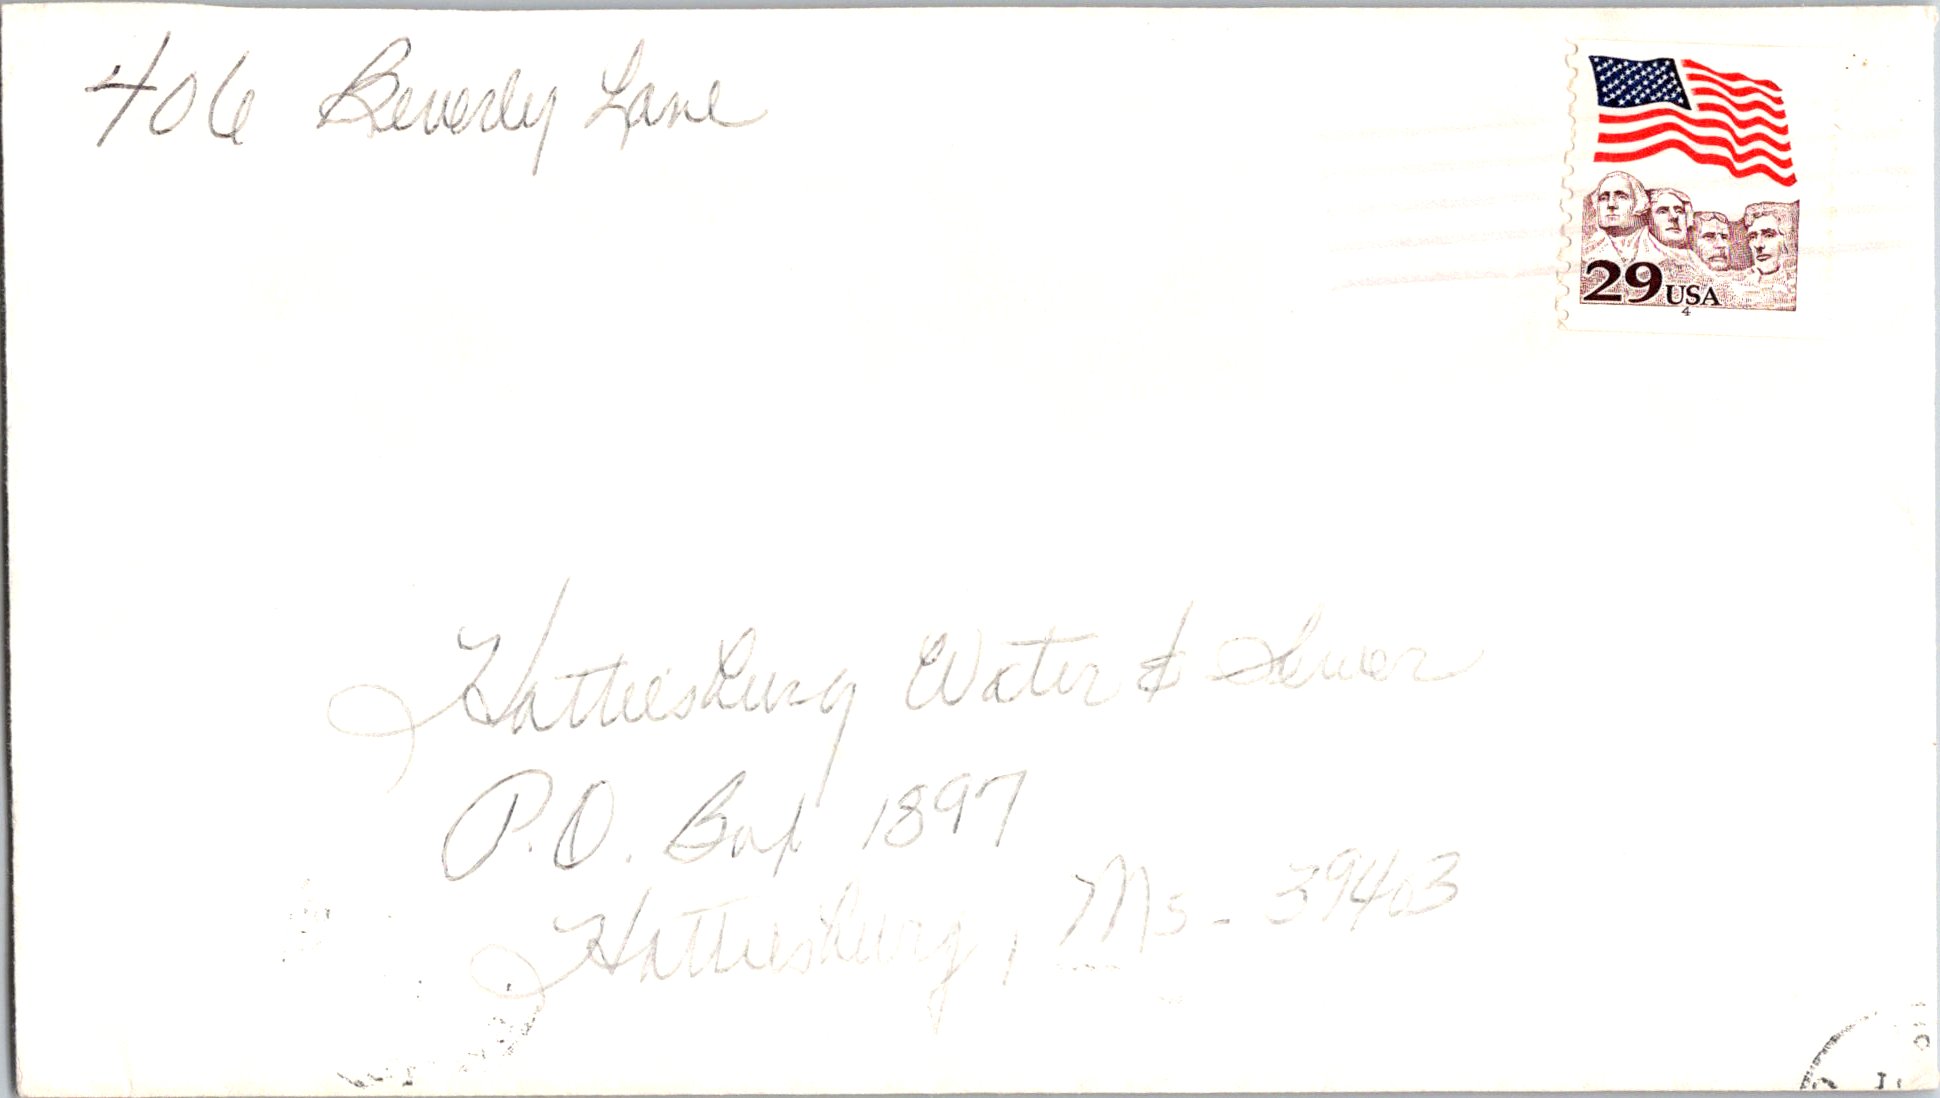 406 Beverly Lane
29 USA
4
Hattiesburg Water & Sewer
P.O. Box 1897
Hattiesburg, Ms - 39403